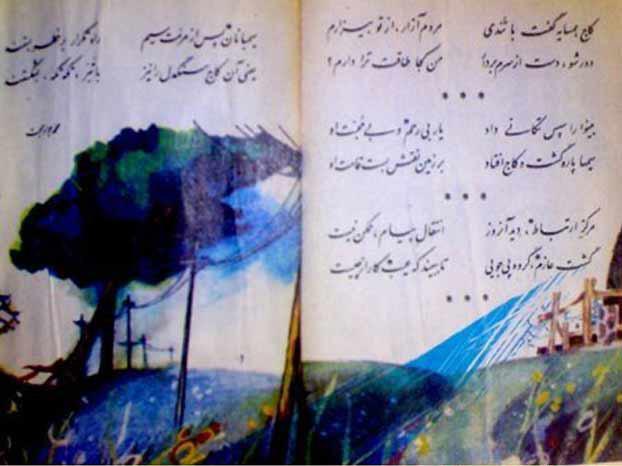 کاج همسایه گفت با تندی مردم آزار، از تو بیزارم
دور شو، دست از سرم بردار من کجا طاقت ترا دارم؟
* * *
بینوا را سپس تکانی داد یار بی رحم و بی محبّت او
سیمها پاره گشت و کاج افتاد بر زمین نقش بست قامت او
* * *
مرکز ارتباط، دید آن روز انتقال پیام، ممکن نیست
گشت عازم، گروه پی جویی تا ببیند که عیب کار از چیست
* * *
سیمبانان پس از مرمت سیم راه تکرار بر خطر بستند
یعنی آن کاج سنگدل را نیز با تبر، تکه تکه، بشکستند
محمد جواد محبت